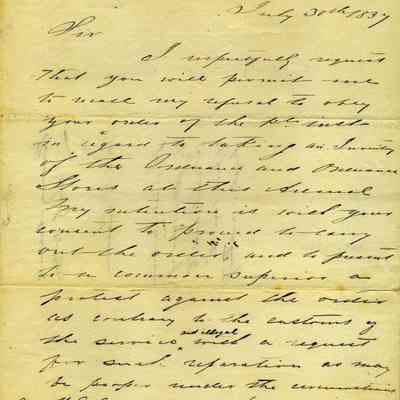 July 30th 1837
Sir
I respectfully request
that you will permit me
to recall my refusal to obey
your order of the inst
in regard to taking an Inventory
of the Ordnance and Ordnance
Stores at this Arsenal
My intention is with your
consent to proceed to carry
out the order and to present
to a common superior a
protest against the order
as contrary to the customs of
the service and illegal with a request
for such reparation as may
be proper under the circumstances